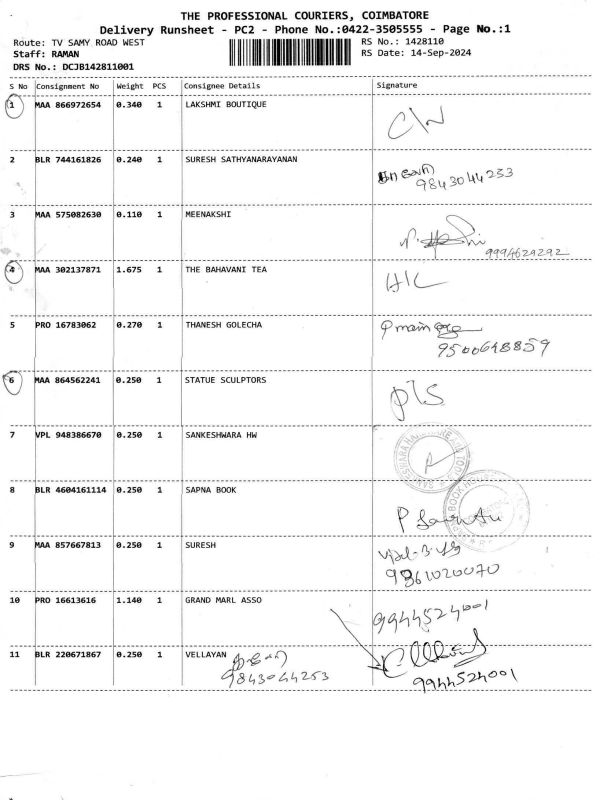 THE PROFESSIONAL COURIERS, COIMBATORE
Delivery Runsheet - PC2 - Phone No.:0422-3505555 - Page No.:1
Route: TV SAMY ROAD WEST RS No.: 1428110
Staff: RAMAN RS Date: 14-Sep-2024
DRS No.: DCJB142811001
S No Consignment No Weight PCS Consignee Details Signature
1 MAA 866972654 0.340 1 LAKSHMI BOUTIQUE
2 BLR 744161826 0.240 1 SURESH SATHYANARAYANAN
9843044253
3 MAA 575082630 0.110 1 MEENAKSHI
9994629292
4 MAA 302137871 1.675 1 THE BAHAVANI TEA
5 PRO 16783062 0.270 1 THANESH GOLECHA
9500648859
6 MAA 864562241 0.250 1 STATUE SCULPTORS
7 VPL 948386670 0.250 1 SANKESHWARA HW
8 BLR 4604161114 0.250 1 SAPNA BOOK
9 MAA 857667813 0.250 1 SURESH
9361020070
10 PRO 16613616 1.140 1 GRAND MARL ASSO
9944524001
11 BLR 220671867 0.250 1 VELLAYAN
9843044253
9944524001